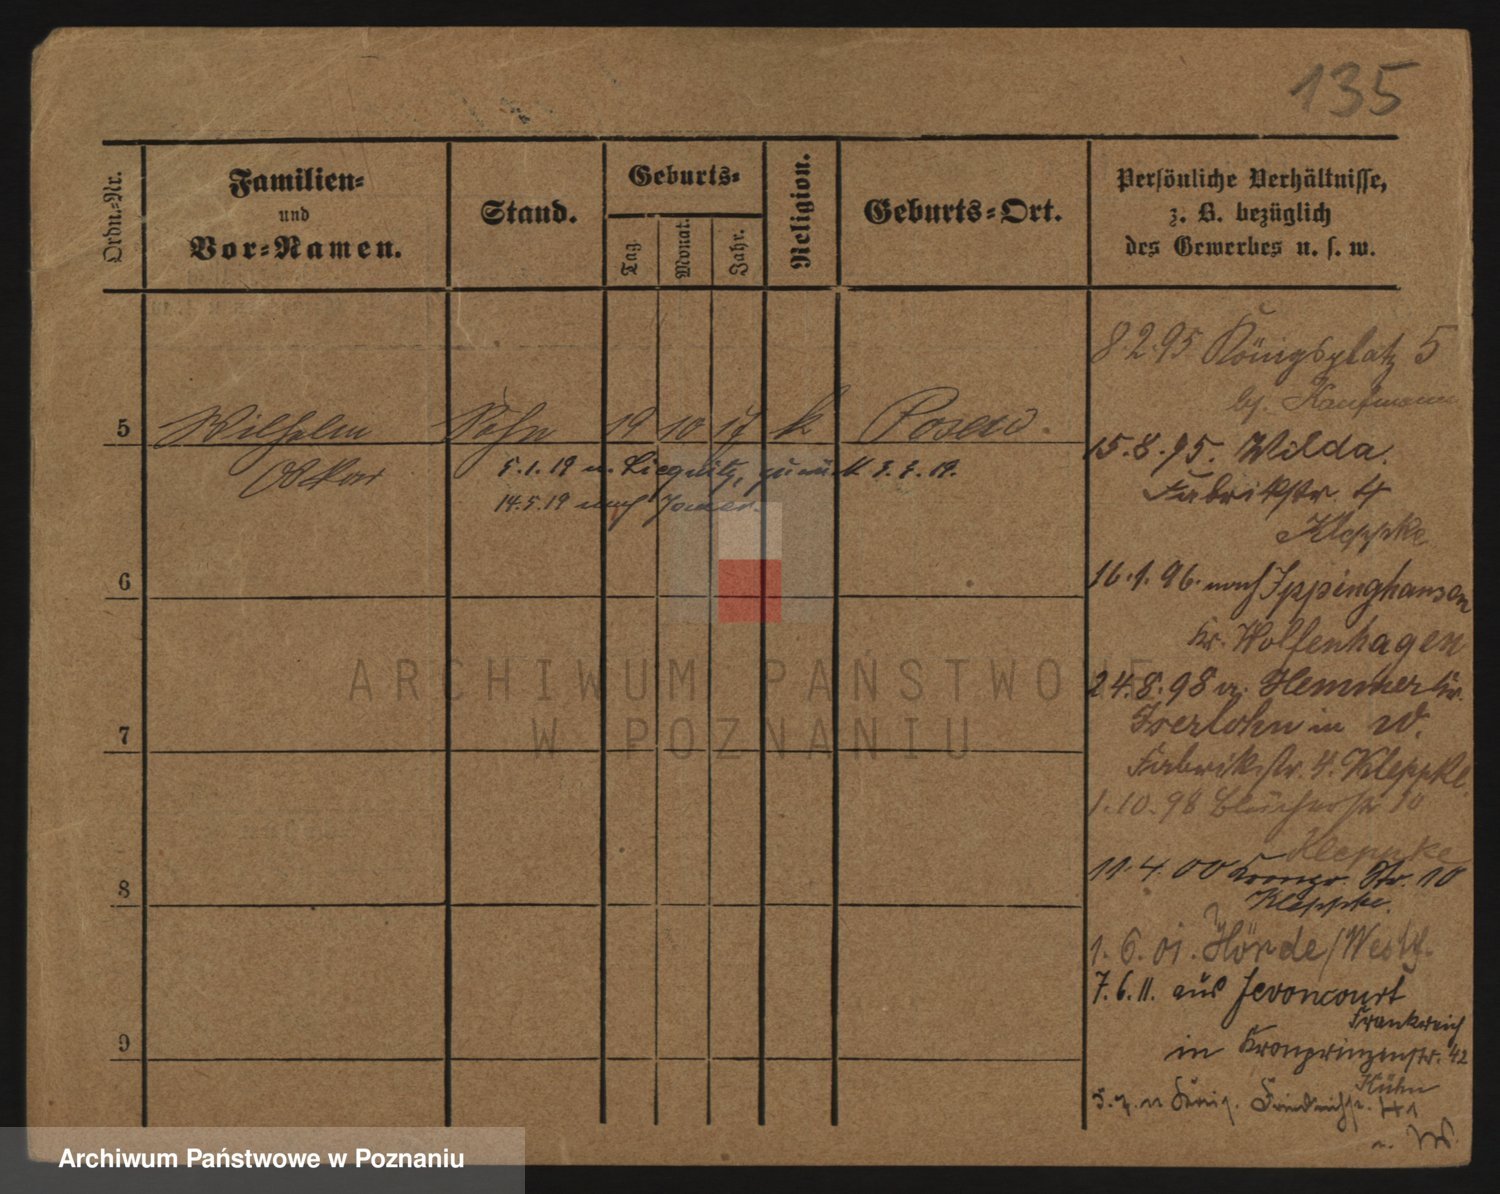 135
Ordn.-Nr.
Familien-
und
Vor-Namen.
Stand.
Geburts-
Tag.
Monat.
Jahr.
Religion.
Geburts-Ort.
Persönliche Verhältnisse,
z. B. bezüglich
des Gewerbes u. s. w.
8 2 95 Königsplatz 5
bj. Kaufmann
5 Wilhelm Sohn 19 10 17 k Posen.
Oskar
5.1.19 n. Liegnitz, zurück
14.5.19 nach
15.8.95. Wilda.
Fabrikstr. 4
Kleppke
6
16.1.96. nach Ippinghausen
Kr. Wolfenhagen
24.8.98 v. Hemmer Kr.
Iserlohn in W.
Fabrikstr. 4. Kleppke
7
1.10.98 Blücherstr 10
Kleppke
11.4.00 Kronpr. Str. 10
Kleppke.
8
1.6.01. Hörde/Westf.
7.6.11. aus Jevoncourt
Frankreich
in Kronprinzenstr. 42
Kühn
9
Friedrichstr.
ARCHIWUM PAŃSTWOWE
W POZNANIU
Archiwum Państwowe w Poznaniu